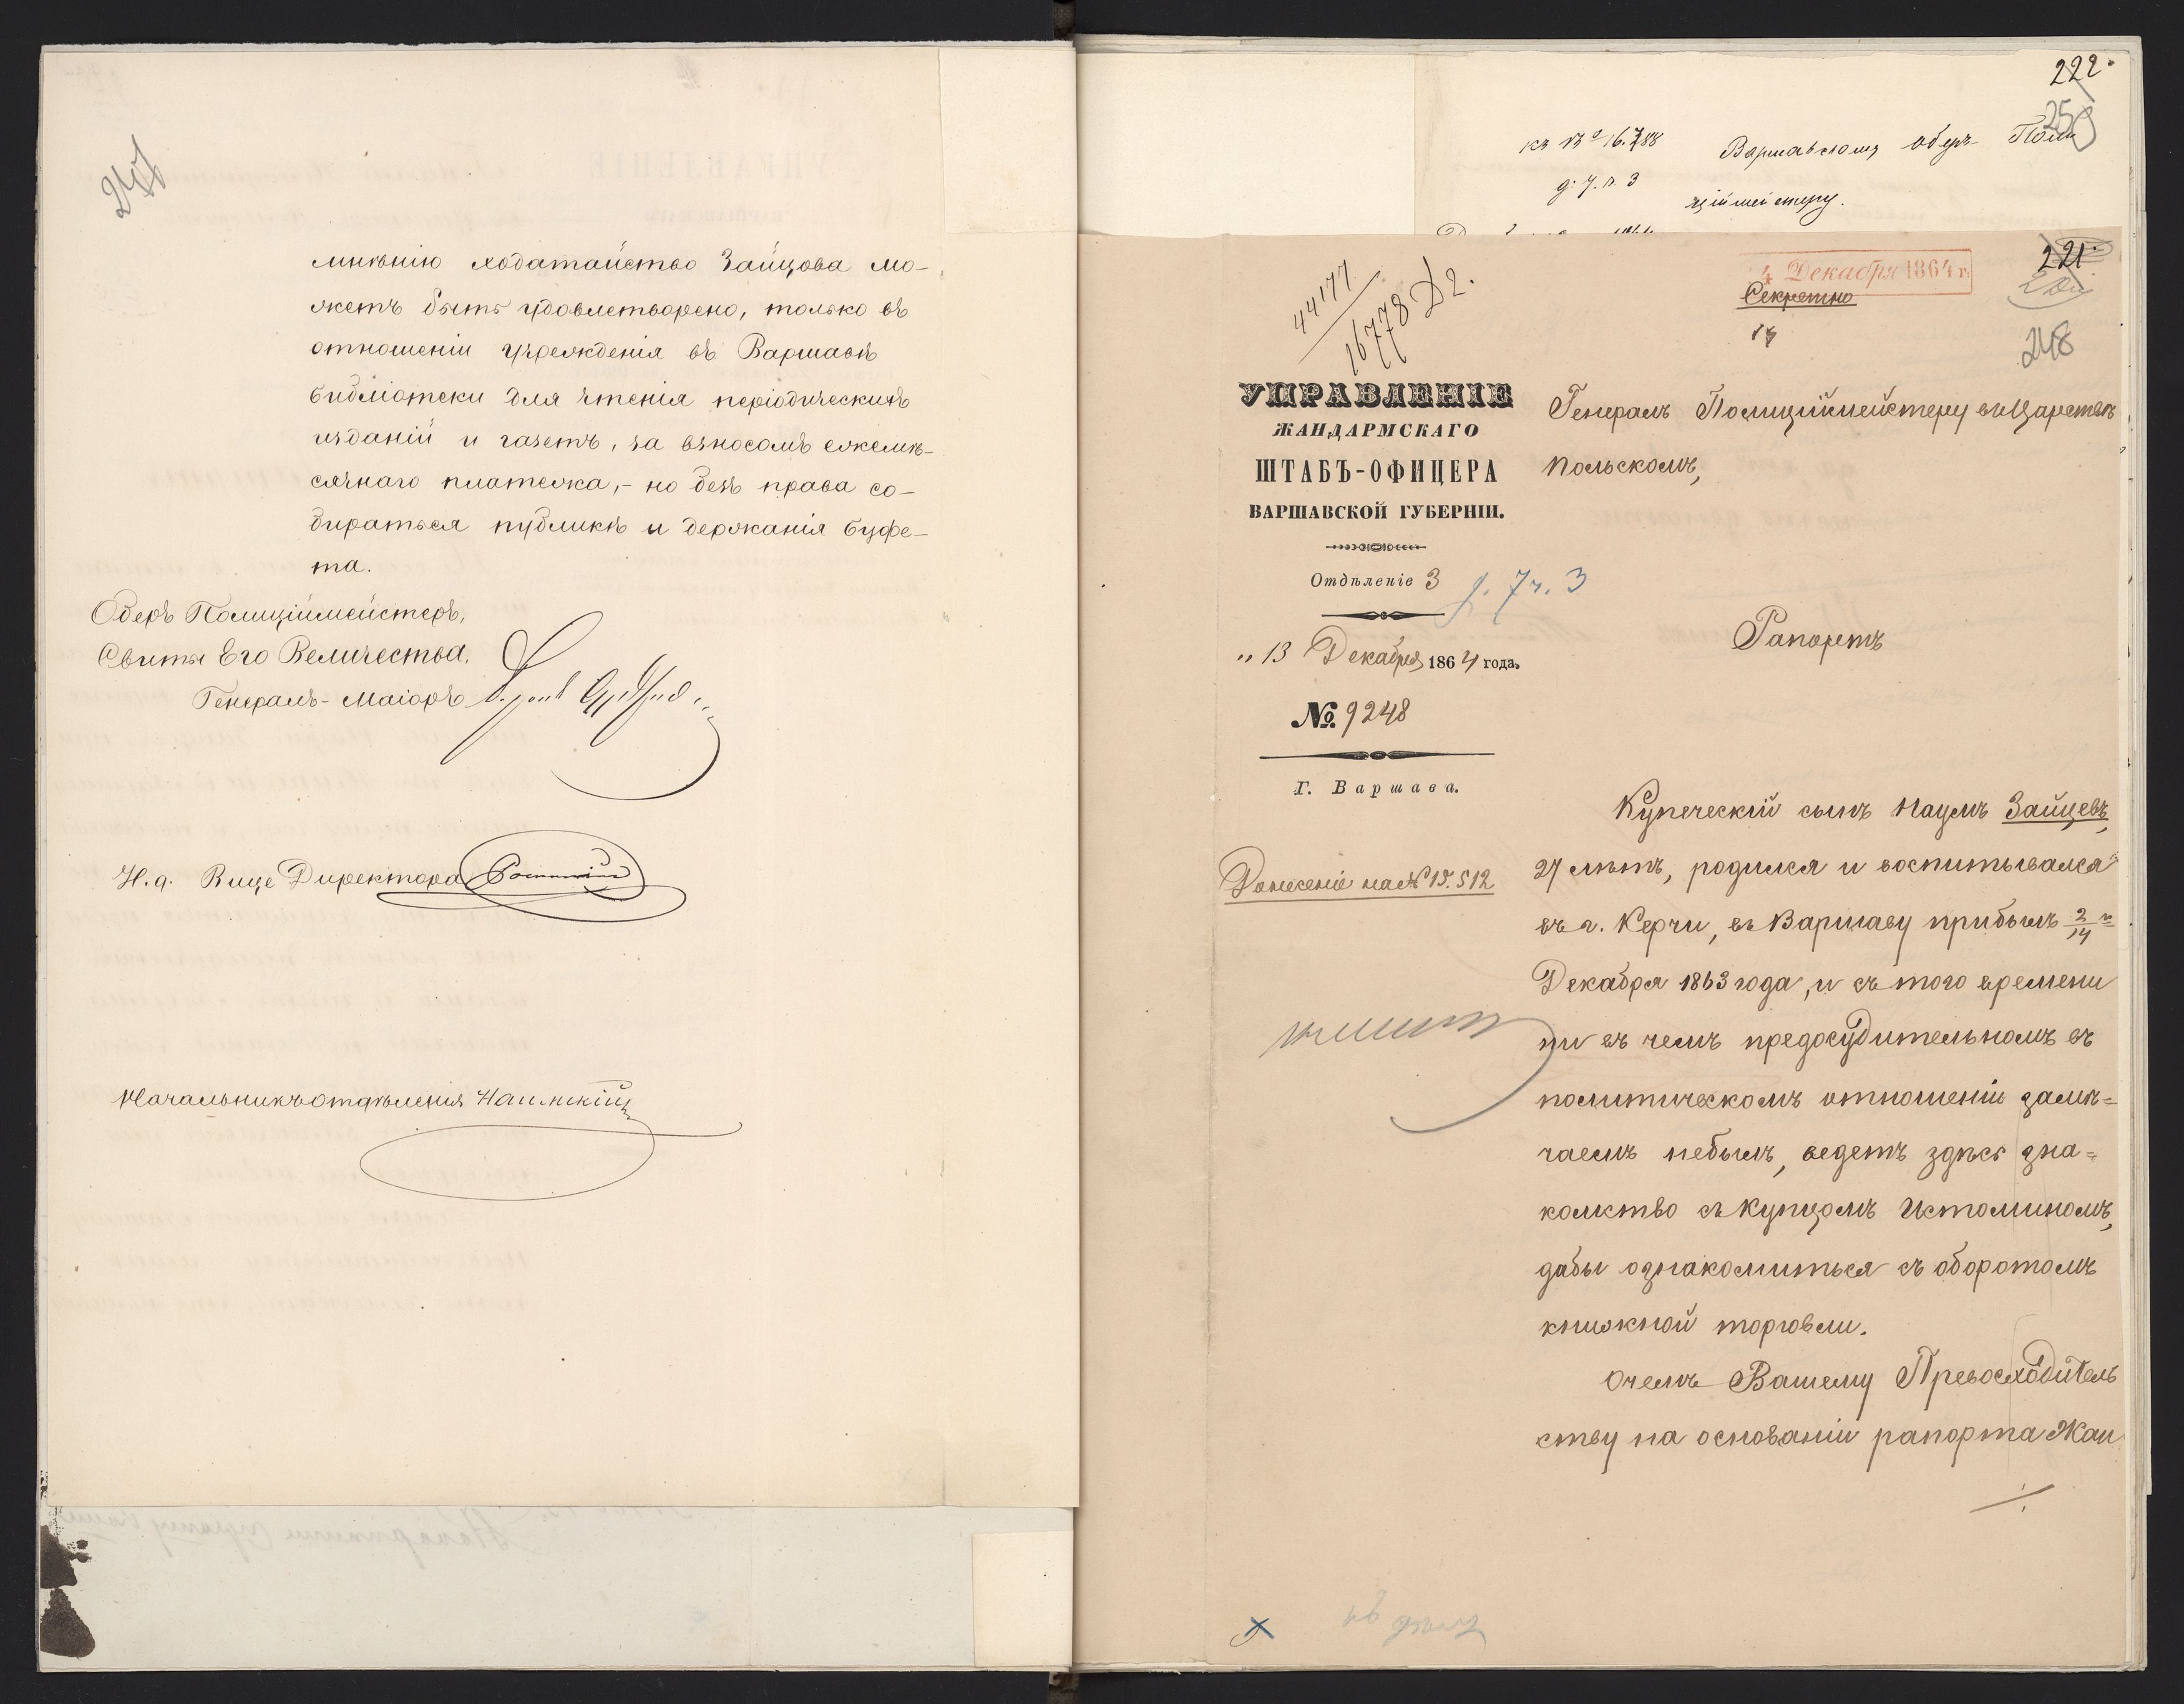 мнѣнію ходатайство Зайцова мо-
жетъ быть удовлетворено, только въ
отношеніи учрежденія въ Варшавѣ
библіотеки для чтенія періодическихъ
изданій и газетъ, за взносомъ ежемѣ-
сячнаго платежа,- но безъ права со-
бираться публикѣ и держанія буфе-
та.
Оберъ Полиціймейстеръ,
Свиты Его Величества,
Генералъ-Маіоръ
И.д. Вице Директора
Начальникъ отдѣленія
222.
250
къ № 16.788
д. 7. ч. 3
Варшавскому Оберъ Поли
ціймейстеру.
4 Декабря 1864 г.
Секретно
221.
248
44177
16778 Д2.
УПРАВЛЕНІЕ
ЖАНДАРМСКАГО
ШТАБЪ-ОФИЦЕРА
ВАРШАВСКОЙ ГУБЕРНІИ.
Отдѣленіе 3
д. 7 ч. 3
„13 Декабря 1864 года.
№ 9248
Г. Варшава.
Донесеніе на № 15.512
Генералъ Полиціймейстеру въ Царствѣ
Польскомъ,
Рапортъ
Купеческій сынъ Наумъ Зайцевъ,
27 лѣтъ, родился и воспитывался
въ г. Керчи, въ Варшаву прибылъ 2/14 го
Декабря 1863 года, и съ того времени
ни въ чемъ предосудительномъ въ
политическомъ отношеніи замѣ=
чаемъ небылъ, ведетъ здѣсь зна=
комство съ купцомъ Истоминомъ,
дабы ознакомиться съ оборотомъ
книжной торговли.
Очемъ Вашему Превосходитель
ству на основаніи рапорта Жан